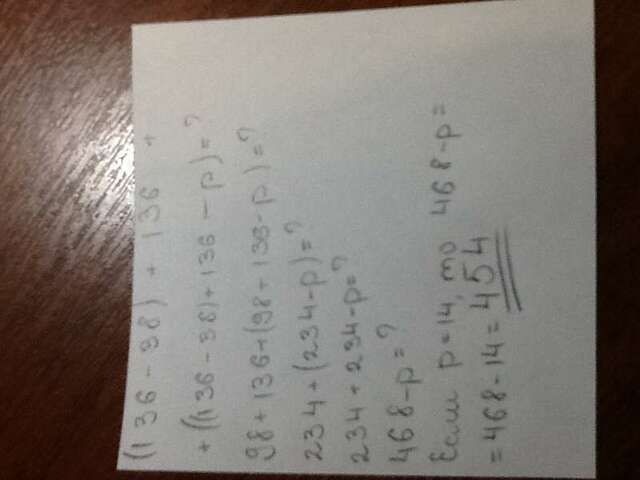 (136-38) + 136 +
+ ((136-38)+136-p)=?
98+136+(98+136-p)=?
234+(234-p)=?
234+234-p=?
468-p=?
Если p=14, то 468-p=
=468-14=454